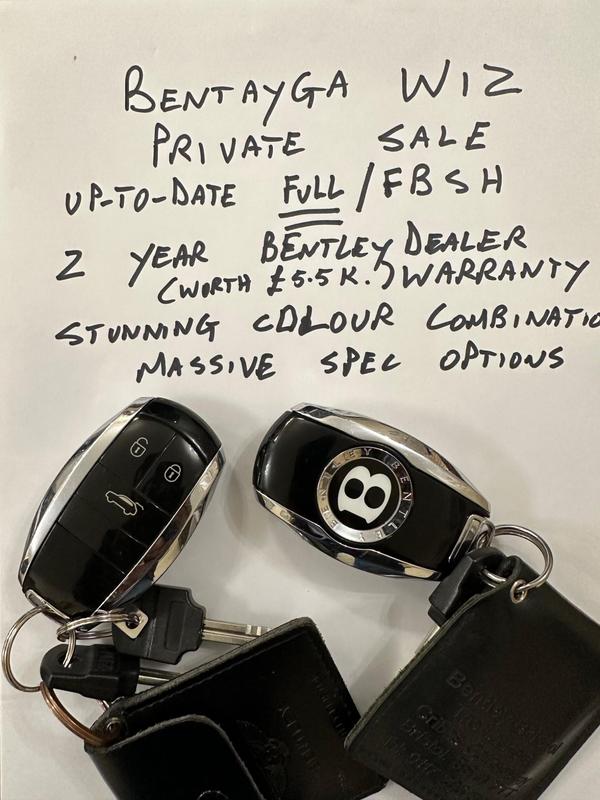 BENTAYGA W12
PRIVATE SALE
UP-TO-DATE FULL / FBSH
2 YEAR BENTLEY DEALER
(WORTH £5.5K.) WARRANTY
STUNNING COLOUR COMBINATIO
MASSIVE SPEC OPTIONS
BENTLEY BENTLEY
B